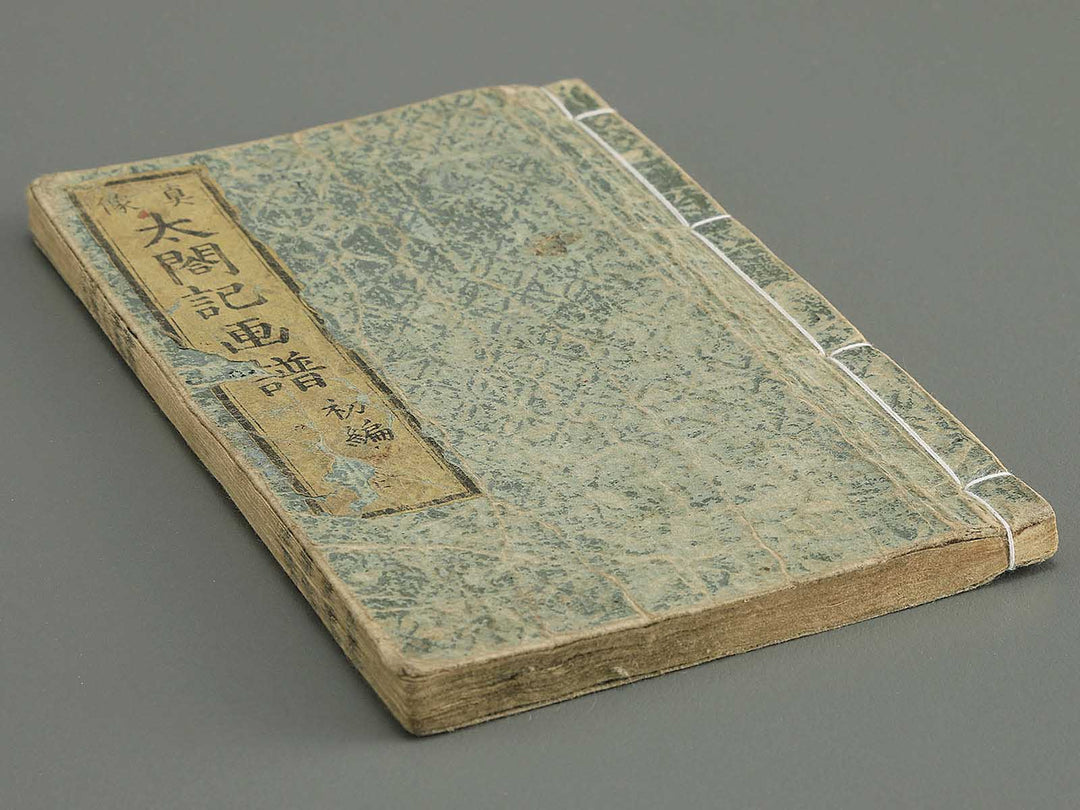 真像
太閤記画譜
初編